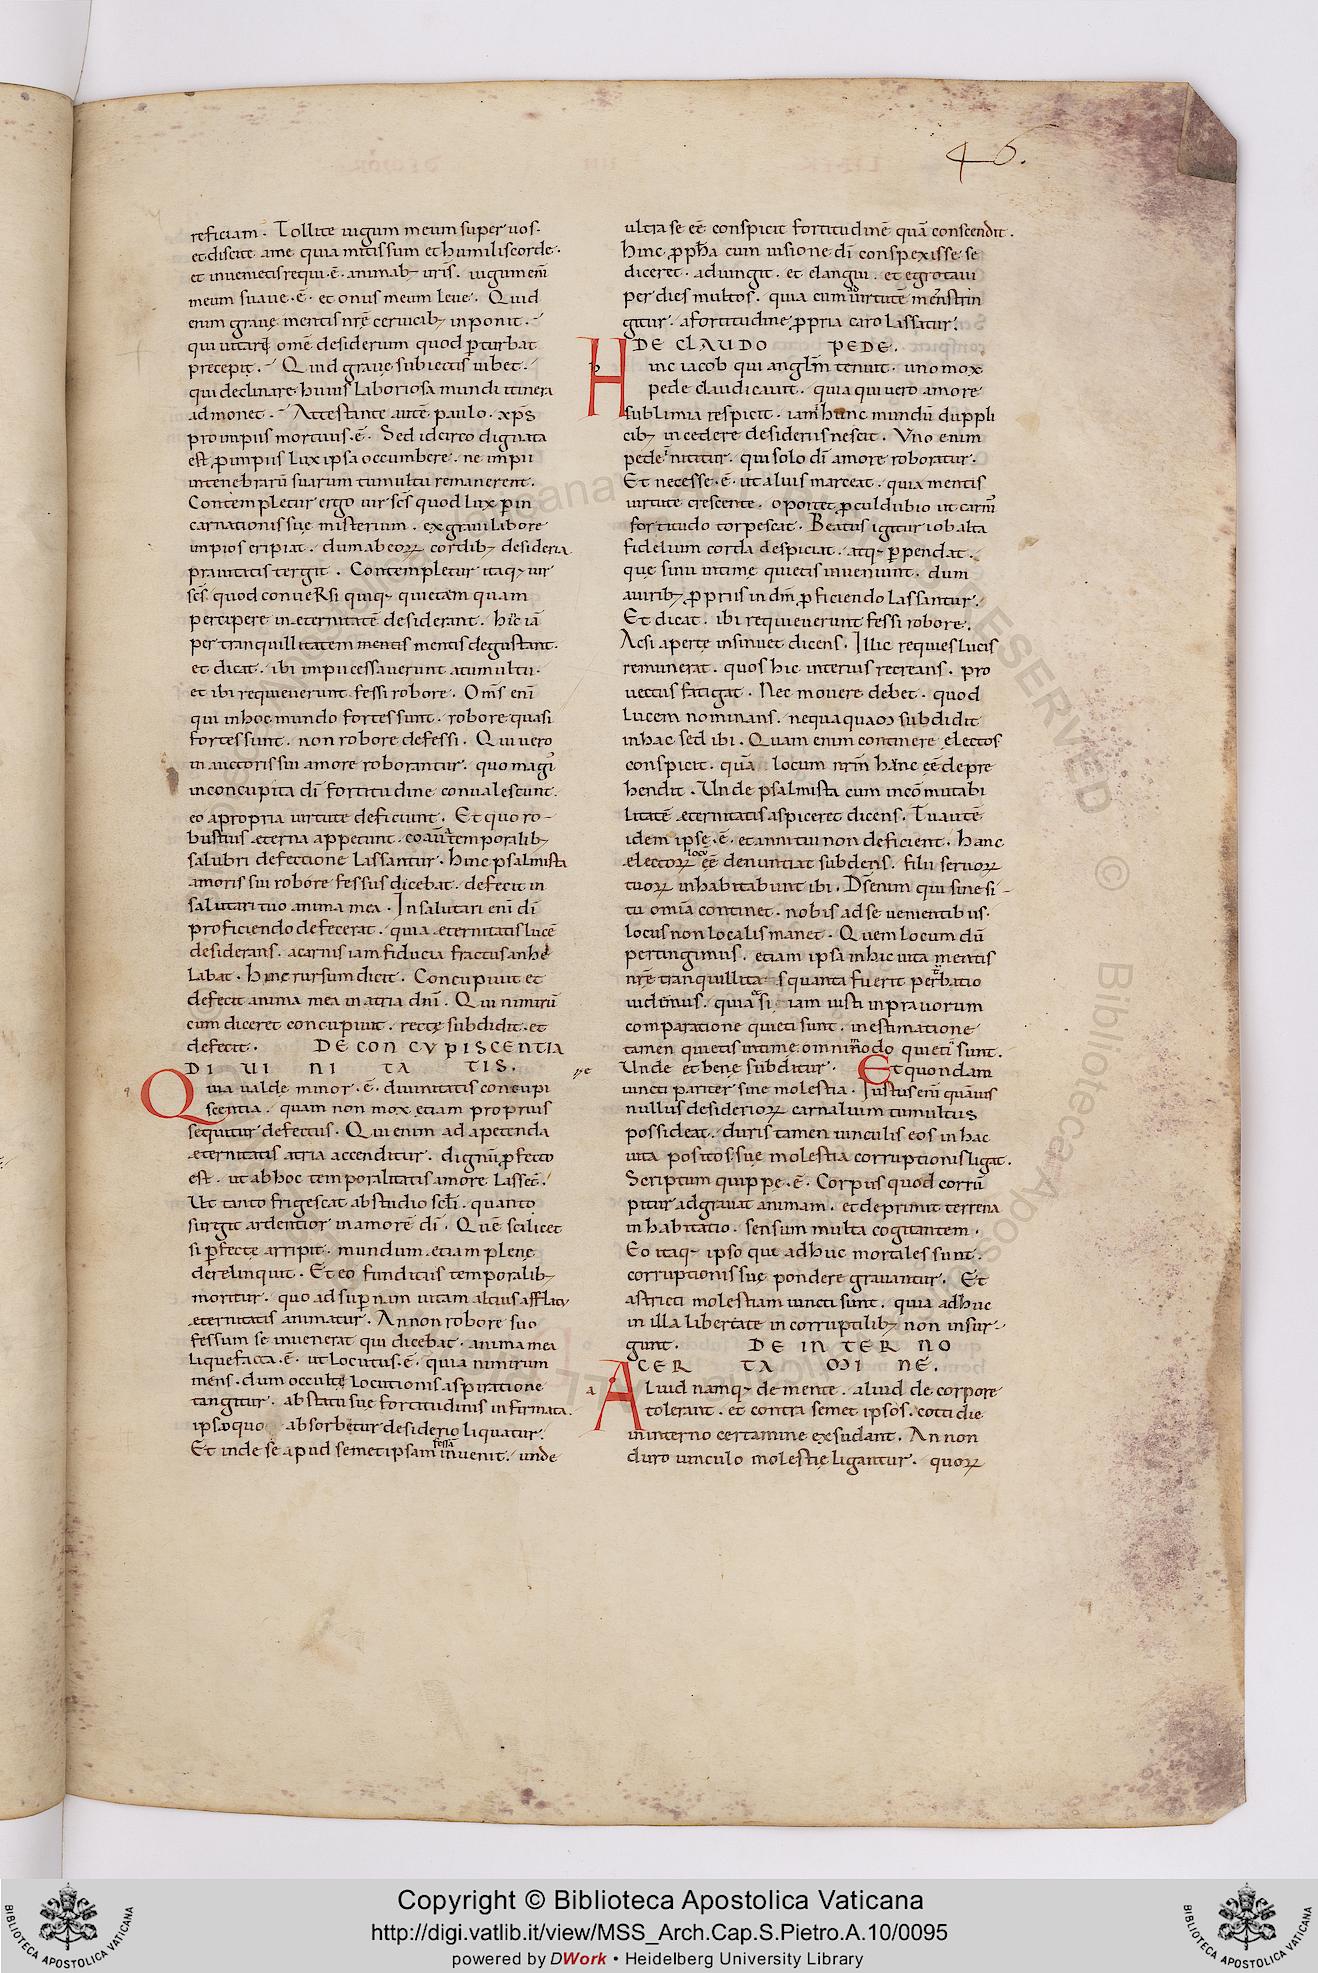 46.
reficiam. Tollite iugum meum super uos.
et discite ame quia mitis sum et humilis corde.
et inuenietis requi.ē. animab; ur̄is. iugum em̄
meum suaue.ē. et onus meum leue. Quid
enim graue mentis nr̄ę ceruicib; inponit.
qui uitari omē desiderium quod ꝑturbat
precepit. Quid graue subiectis iubet.
qui declinare huius laboriosa mundi itinera
admonet. Attestante autē paulo. xp̄s
pro impiis mortuus.ē. Sed idcirco dignata
est ꝓ impiis lux ipsa occumbere. ne impii
intenebrarū suarum tumultu remanerent.
Contempletur ergo uir sc̄s quod lux ꝑ in
carnationis suę misterium. ex graui labore
impios eripiat. dum ab eoꝝ cordib; desideria
prauitatis tergit. Contempletur itaq; uir
sc̄s. quod conueRsi quiq; quietem quam
percipere in ęternitatē desiderant. hic iā
per tranquillitatem mentis mentis degustant.
et dicat. ibi impii cessauerunt a tumultu.
et ibi requieuerunt fessi robore. Om̄s eni
qui in hoc mundo fortes sunt. robore quasi
fortes sunt. non robore defessi. Qui uero
in auctoris sui amore roborantur. quo magi
in concupita dī fortitudine conualescunt.
eo a propria uirtute deficiunt. Et quo ro-
bustius ęterna appetunt. eo aut temporalib;
salubri defectione lassantur. hinc psalmista
amoris sui robore fessus dicebat. defecit in
salutari tuo anima mea. In salutari eni dī
proficiendo defecerat. quia ęternitatis lucē
desiderans. a carnis iam fiducia fractus anhe
labat. hinc rursum dicit. Concupiuit et
defecit anima mea in atria dn̄i. Qui nimirū
cum diceret concupiuit. recte subdidit. et
defecit. DE CONCVPISCENTIA
DI UI NI TA TIS.
Quia ualde minor.ē. diuinitatis concupi
scentia. quam non mox etiam proprius
sequitur defectus. Qui enim ad apetenda
ęternitatis atria accenditur. dignū ꝑfecto
est. ut ab hoc temporalitatis amore lassec̄.
Ut tanto frigescat ab studio scl̄i. quanto
surgit ardentior in amorē dī. Quē scilicet
si ꝑfecte arripit. mundum etiam plene
derelinquit. Et eo funditus temporalib;
moritur. quo ad suꝑnam uitam altius afflatu
ęternitatis animatur. An non robore suo
fessum se inuenerat qui dicebat. anima mea
liquefacta.ē. ut locutus.ē. quia nimirum
mens. dum occulte locutionis aspiratione
tangitur. ab statu suę fortitudinis infirmata.
ipso quo absorbetur desiderio liquatur.
Et inde se apud semetipsam fessā inuenit. unde
ultra se eē conspicit fortitudinē quā conscendit.
hinc ꝓph̄a cum uisione dī conspexisse se
diceret. adiungit. et elangui. et egrotaui
per dies multos. quia cum
gitur. a fortitudine ꝓpria caro lassatur.
DE CLAUDO PEDE.
Hinc iacob qui angl̄m tenuit. uno mox
pede claudicauit. quia qui uero amore
sublimia respicit. iam hunc mundū duppli
cib; incedere desideriis nescit. Uno enim
pede nititur. qui solo dī amore roboratur.
Et necesse.ē. ut alius marceat. quia mentis
uirtute crescente. oportet ꝓculdubio ut carni
fortitudo torpescat. Beatus igitur iob alta
fidelium corda despiciat. atq; ꝑpendat.
quę sinu intimę quietis inueniunt. dum
uirib; ꝓpriis in dm̄ ꝓficiendo lassantur.
Et dicat. ibi requieuerunt fessi robore.
Acsi aperte insinuet dicens. Illic requies lucis
remunerat. quos hic interius recreans. pro
uectus fatigat. Nec mouere debet. quod
lucem nominans. nequaquam subdidit
in hac sed ibi. Quam enim continere electos
conspicit. quā locum nrm̄ hanc eē depre
hendit. Unde psalmista cum incōmutabi
litatē ęternitatis aspiceret dicens. Tu autē
idem ipse.ē. et anni tui non deficient. Hanc
electoꝝ locū eē denuntiat subdens. filii seruoꝝ
tuoꝝ inhabitabunt ibi. Ds̄ enim qui sine si-
tu omia continet. nobis ad se uenientibus.
locus non localis manet. Quem locum dū
pertingimus. etiam ipsa in hic uita mentis
nrę tranquillitas quanta fuerit perturbatio
uidemus. quia etsi iam iusti in prauorum
comparatione quieti sunt. in estimatione
tamen quietis intime omnino do quieti sunt.
Unde et bene subditur. Et quondam
uincti pariter sine molestia. Iustus eni quāuis
nullus desiderioꝝ carnalium tumultus
possideat. duris tamen uinculis eos in hac
uita positos. suę molestia corruptionis ligat.
Scriptum quippe.ē. Corpus quod corrū
pitur adgrauat animam. et deprimit terrena
inhabitatio. sensum multa cogitantem.
Eo itaq; ipso que adhuc mortales sunt.
corruptionis suę pondere grauantur. Et
astricti molestiam iuncti sunt. quia adhuc
in illa libertate incorruptilib; non insur-
gunt. DE INTERNO
CER TA MI NE.
Aliud namq; de mente. aliud de corpore
tolerant. et contra semet ipsos. cotti die
in interno certamine exsudant. An non
duro uinculo molestię ligantur. quoꝝ
Copyright © Biblioteca Apostolica Vaticana
http://digi.vatlib.it/view/MSS_Arch.Cap.S.Pietro.A.10/0095
powered by DWork • Heidelberg University Library
BIBLIOTECA APOSTOLICA VATICANA
BIBLIOTECA APOSTOLICA VATICANA